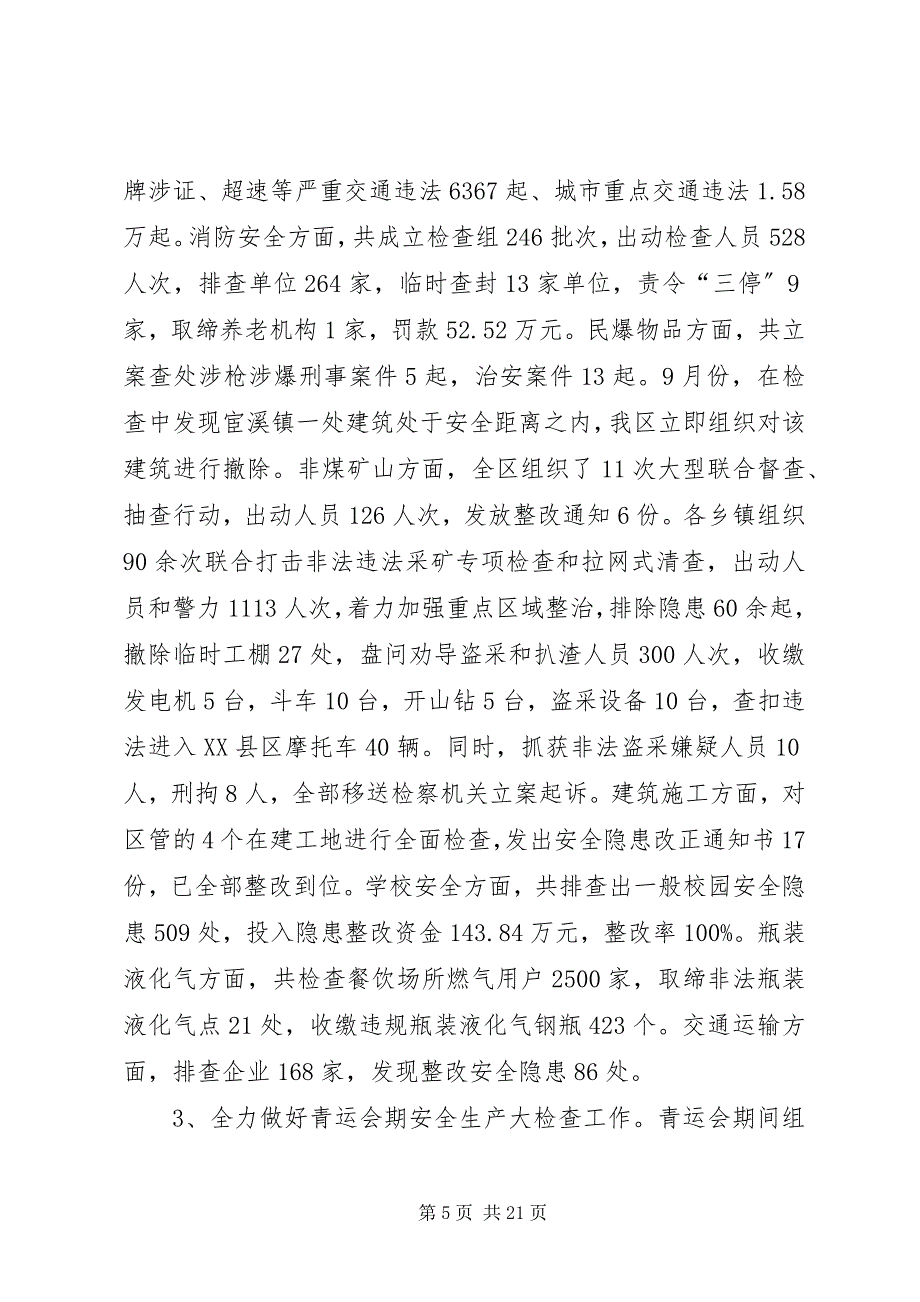 牌涉证、超速等严重交通违法 6367 起、城市重点交通违法 1.58
万起。消防安全方面，共成立检查组 246 批次，出动检查人员 528
人次，排查单位 264 家，临时查封 13 家单位，责令“三停〞9
家，取缔养老机构 1 家，罚款 52.52 万元。民爆物品方面，共立
案查处涉枪涉爆刑事案件 5 起，治安案件 13 起。9 月份，在检
查中发现宦溪镇一处建筑处于安全距离之内，我区立即组织对该
建筑进行撤除。非煤矿山方面，全区组织了 11 次大型联合督查、
抽查行动，出动人员 126 人次，发放整改通知 6 份。各乡镇组织
90 余次联合打击非法违法采矿专项检查和拉网式清查，出动人
员和警力 1113 人次，着力加强重点区域整治，排除隐患 60 余起，
撤除临时工棚 27 处，盘问劝导盗采和扒渣人员 300 人次，收缴
发电机 5 台，斗车 10 台，开山钻 5 台，盗采设备 10 台，查扣违
法进入 XX 县区摩托车 40 辆。同时，抓获非法盗采嫌疑人员 10
人，刑拘 8 人，全部移送检察机关立案起诉。建筑施工方面，对
区管的 4 个在建工地进行全面检查，发出安全隐患改正通知书 17
份，已全部整改到位。学校安全方面，共排查出一般校园安全隐
患 509 处，投入隐患整改资金 143.84 万元，整改率 100%。瓶装
液化气方面，共检查餐饮场所燃气用户 2500 家，取缔非法瓶装
液化气点 21 处，收缴违规瓶装液化气钢瓶 423 个。交通运输方
面，排查企业 168 家，发现整改安全隐患 86 处。
3、全力做好青运会期安全生产大检查工作。青运会期间组
第 5 页 共 21 页